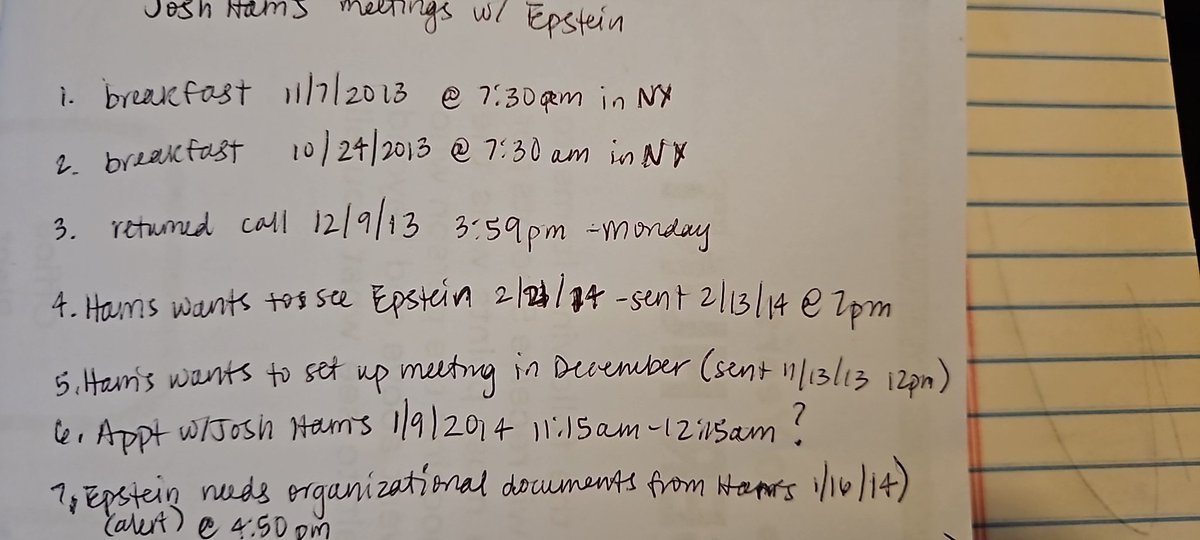 Josh Harris meetings w/ Epstein
1. breakfast 11/7/2013 @ 7:30am in NY
2. breakfast 10/24/2013 @ 7:30 am in NY
3. returned call 12/9/13 3:59pm - Monday
4. Harris wants to see Epstein 2/21/14 - sent 2/13/14 @ 2pm
5. Harris wants to set up meeting in December (sent 11/13/13 12pm)
6. Appt w/Josh Harris 1/9/2014 11:15am-12:15am ?
7. Epstein needs organizational documents from Harris 1/16/14)
(alert) @ 4:50 pm